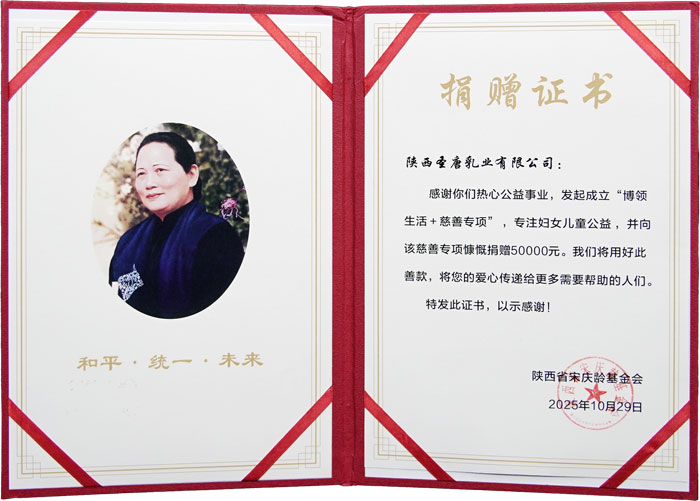 和平·统一·未来
捐赠证书
陕西圣唐乳业有限公司：
感谢你们热心公益事业，发起成立“博领
生活+慈善专项”，专注妇女儿童公益，并向
该慈善专项慷慨捐赠50000元。我们将用好此
善款，将您的爱心传递给更多需要帮助的人们。
特发此证书，以示感谢！
陕西省宋庆龄基金会
2025年10月29日